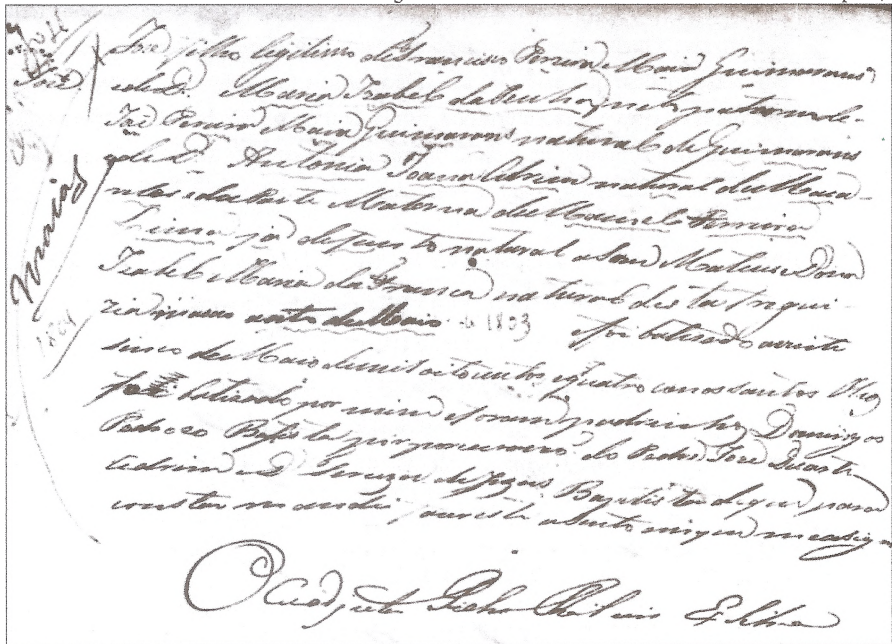 José
Maio
1804
José filho legitimo de Francisco Pereira Maia Guimaraens
e de D. Maria Izabel da Cunha, neto paterno de
José Pereira Maia Guimarans natural de Guimarains
e de D. Antonia Joana Adrian natural da
e da Parte Materna de Manuel Ferreira
Lima ja defunto natural a San Mateus e Dona
Izabel Maria da França natural desta fregui-
zia naseu aoito de Maio de 1803 e foi batisado a vinte
sinco de Maio de mil oitosentos e quatro com os santos Olios
foi batizado por mim e foram padrinhos Domingos
Pedrozo Batista por procurasaõ do Pedro José Duarte
Adrian e D. Tereza de Jezus Baptista de que para
constar mandei este asento em que me asigno
O Cuadjutor Pedro